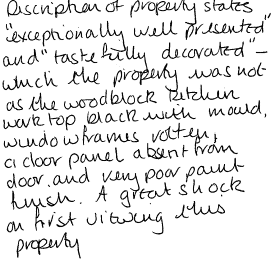 Discription of property states
"exceptionally well presented"
and "tastefully decorated" -
which the property was not
as the woodblock kitchen
work top black with mould,
window frames rotten,
a door panel absent from
door and very poor paint
finish. A great shock
on first viewing this
property